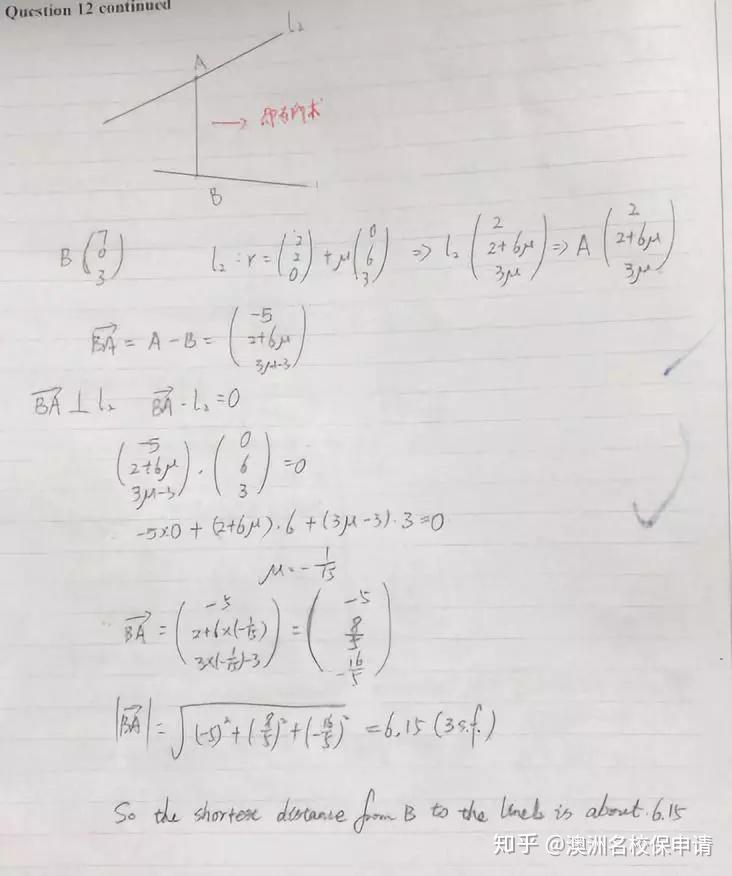 Question 12 continued
l₂
A
→ 即为所求
B
B (7 0 3) l₂ : r = (2 2 0) + μ (0 6 3) => l₂ (2 2+6μ 3μ) => A (2 2+6μ 3μ)
BA = A - B = (-5 2+6μ 3μ-3)
BA ⊥ l₂ BA · l₂ = 0
(-5 2+6μ 3μ-3) · (0 6 3) = 0
-5×0 + (2+6μ)·6 + (3μ-3)·3 = 0
μ = -1/15
BA = (-5 2+6×(-1/15) 3×(-1/15)-3) = (-5 8/5 -16/5)
|BA| = √((-5)² + (8/5)² + (-16/5)²) = 6.15 (3 s.f.)
So the shortest distance from B to the line l₂ is about 6.15
知乎 @澳洲名校保申请